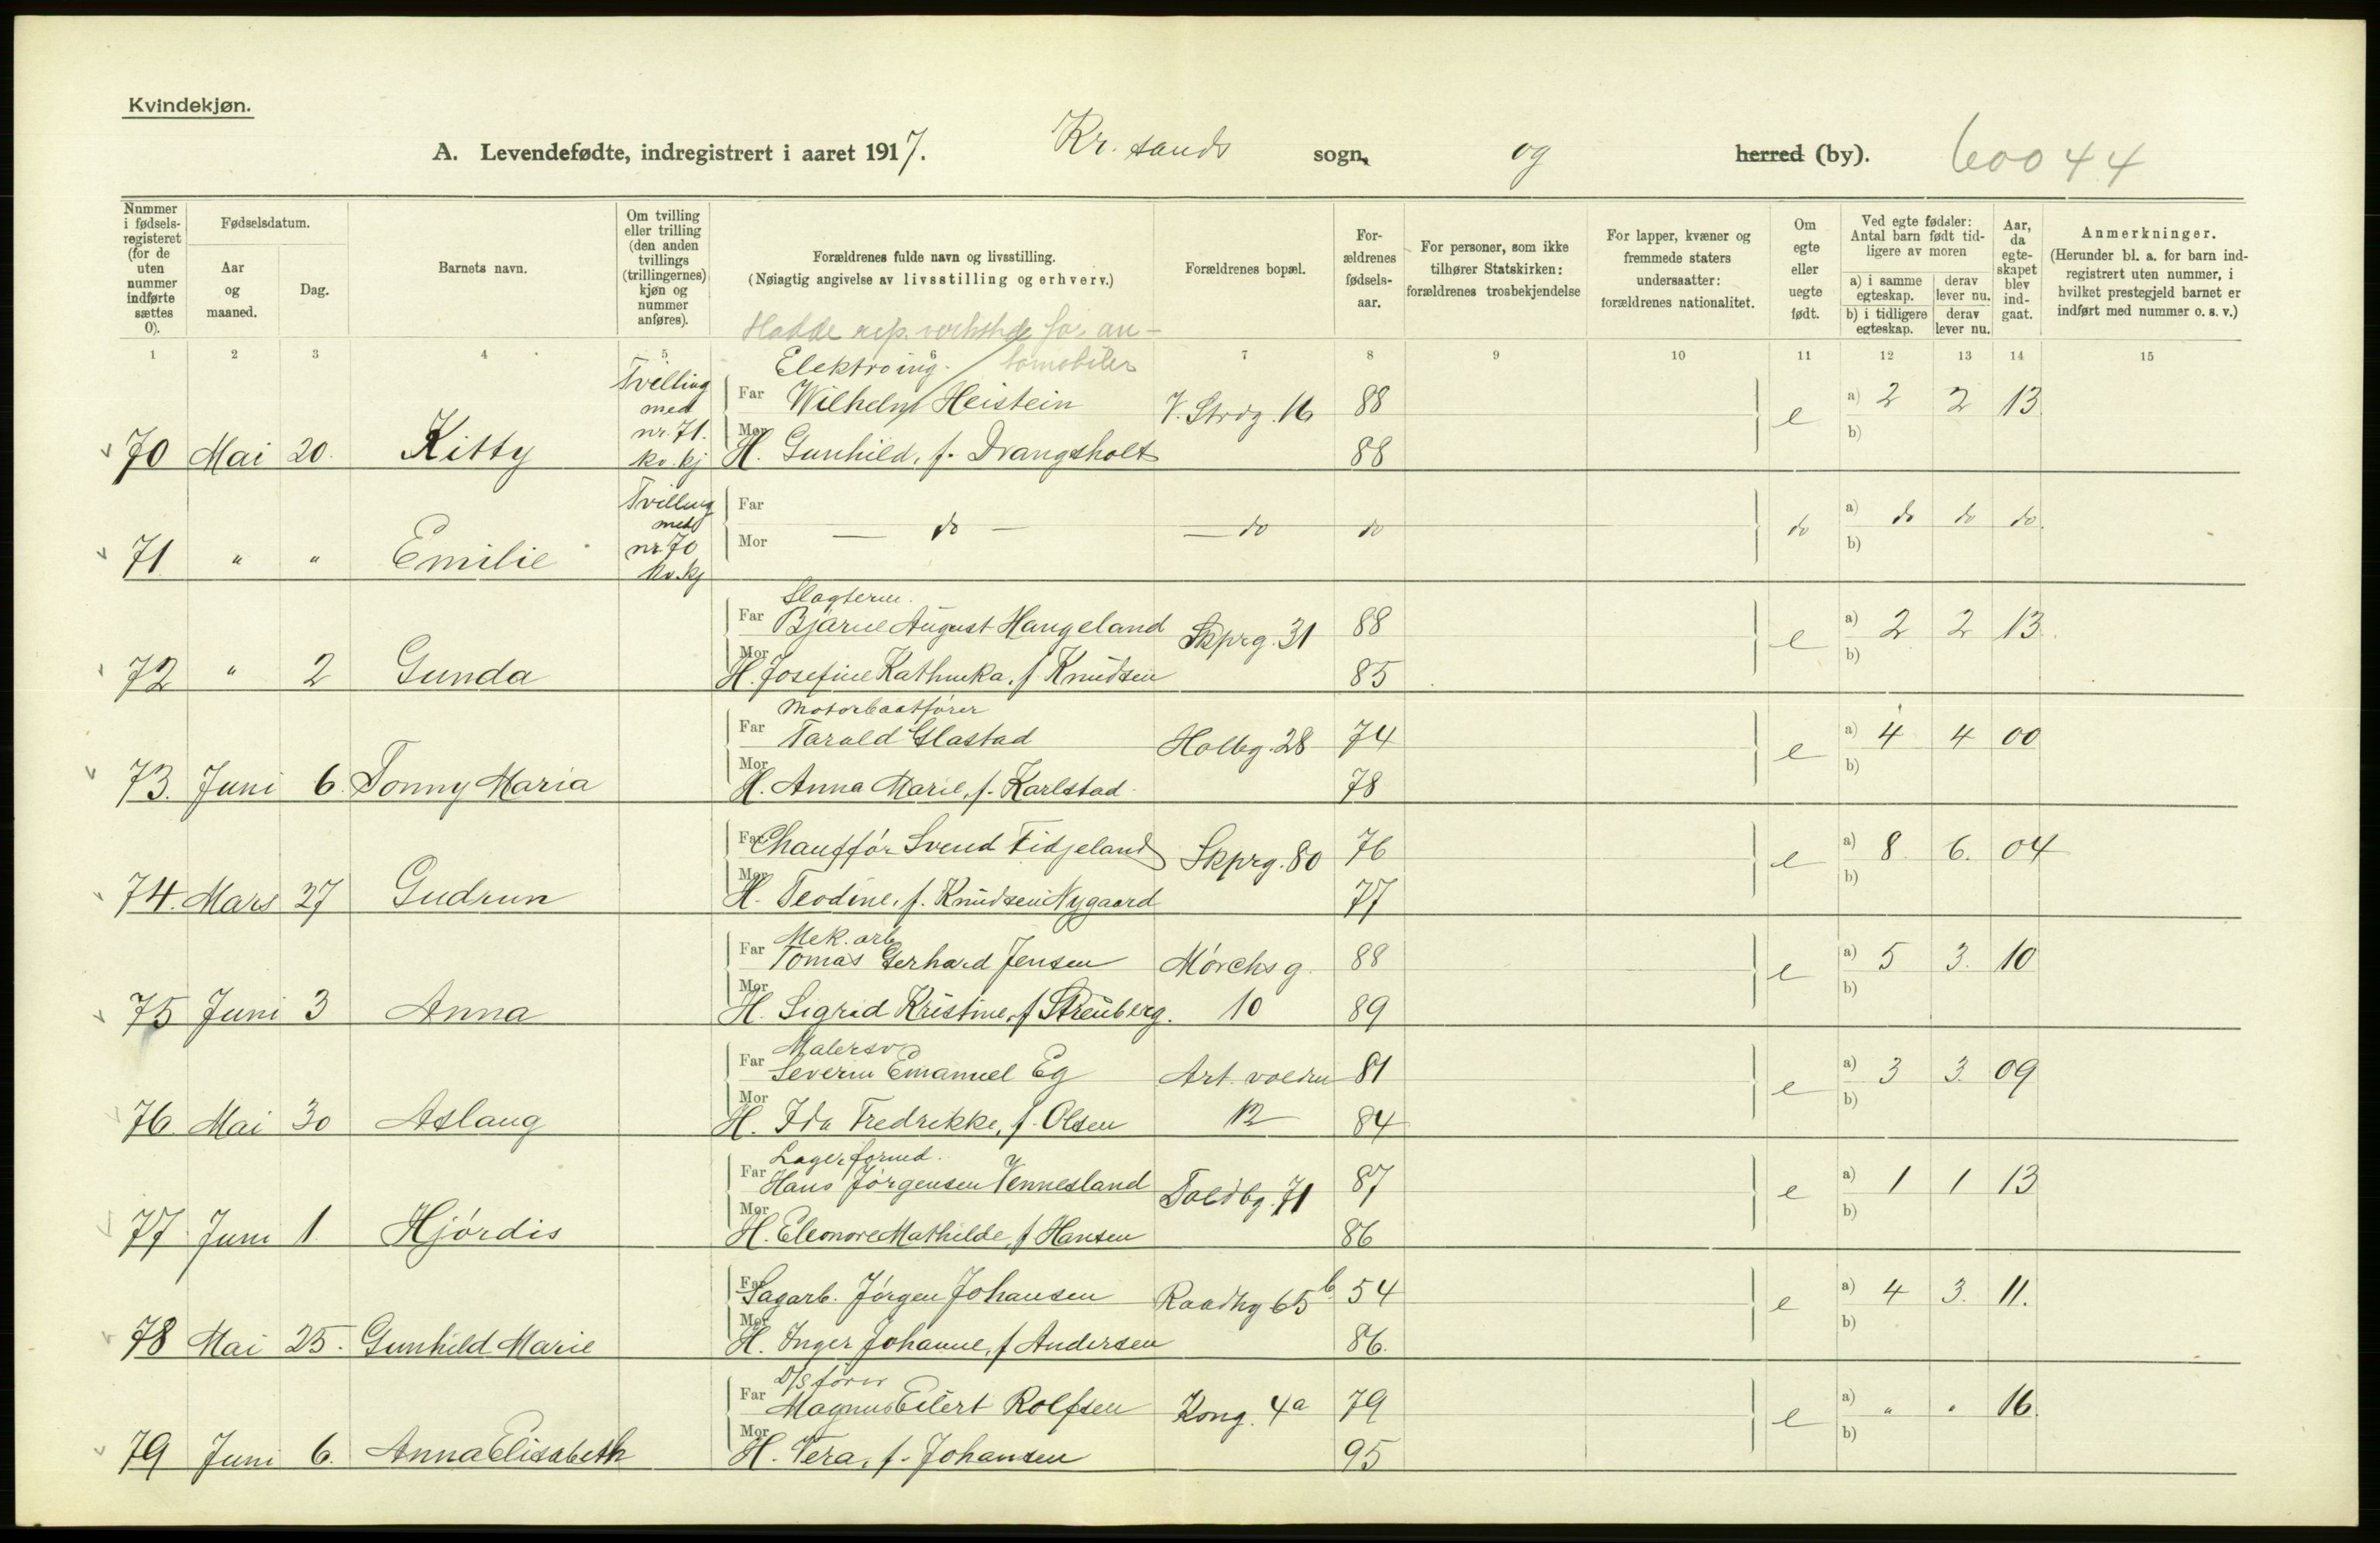 Kvindekjøn.
A. Levendefødte, indregistrert i aaret 1917. Kr. sands sogn, og herred (by). 60044
Nummer i fødselsregisteret (for de uten nummer indførte sættes 0).
Fødselsdatum.
Aar og maaned.
Dag.
Barnets navn.
Om tvilling eller trilling (den anden tvillings (trillingernes) kjøn og nummer anføres).
Forældrenes fulde navn og livsstilling.
(Nøiagtig angivelse av livsstilling og erhverv.)
Forældrenes bopæl.
Forældrenes fødselsaar.
For personer, som ikke tilhører Statskirken: forældrenes trosbekjendelse
For lapper, kvæner og fremmede staters undersaatter: forældrenes nationalitet.
Om egte eller uegte født.
Ved egte fødsler: Antal barn født tidligere av moren
a) i samme egteskap. derav lever nu.
b) i tidligere egteskap. derav lever nu.
Aar, da egteskapet blev indgaat.
Anmerkninger.
(Herunder bl. a. for barn indregistrert uten nummer, i hvilket prestegjeld barnet er indført med nummer o. s. v.)
1 2 3 4 5 6 7 8 9 10 11 12 13 14 15
Hadde rep. verksted for automobiler
Elektroing.
Tvilling med nr. 71. kv. kj
Far Wilhelm Heistein V. Strdg. 16 88 e a) 2 2 13
70 Mai 20. Kitty Mor H. Gunhild, f. Drangsholt 88 b)
Tvilling med nr 70 kv. kj
71 " " Emilie Far Mor — do — — do do do a) do do do. b)
Slagterm.
Far Bjarne August Haugeland Skprg. 31 88 e a) 2 2 13.
72 " 2 Gunda Mor H. Josefine Kathinka, f. Knudsen 85 b)
Motorbaatfører
Far Tarald Glastad Holbg. 28 74 e a) 4 4 00
73. Juni 6. Tonny Maria Mor H. Anna Marie, f. Karlstad 78 b)
Far Chauffør Svend Fidjeland Skprg. 80 76 e a) 8. 6. 04
74. Mars 27 Gudrun Mor H. Teodine, f. Knudsen Nygaard 77 b)
Mek. arb
Far Tomas Gerhard Jensen Mørchs g. 88 e a) 5 3. 10
75 Juni 3 Anna Mor H. Sigrid Kristine, f Strenberg. 10 89 b)
Malersv
Far Severin Emanuel Eg Art. volden 81 e a) 3 3. 09
76 Mai 30 Aslaug Mor H. Ida Fredrikke, f. Olsen 12 84 b)
Lagerformd.
Far Hans Jørgensen Vennesland Toldbg. 71 87 e a) 1 1 13
77 Juni 1. Hjørdis Mor H. Eleonore Mathilde, f Hansen 86 b)
Far Sagarb. Jørgen Johansen Raadhg 65 b 54 e a) 4 3. 11.
78 Mai 25. Gunhild Marie Mor H. Inger Johanne, f Andersen 86. b)
D/S fører
Far Magnus Eilert Rolfsen Kong. 4a 79 e a) " " 16.
79 Juni 6. Anna Elisabeth Mor H. Vera, f. Johansen 95 b)